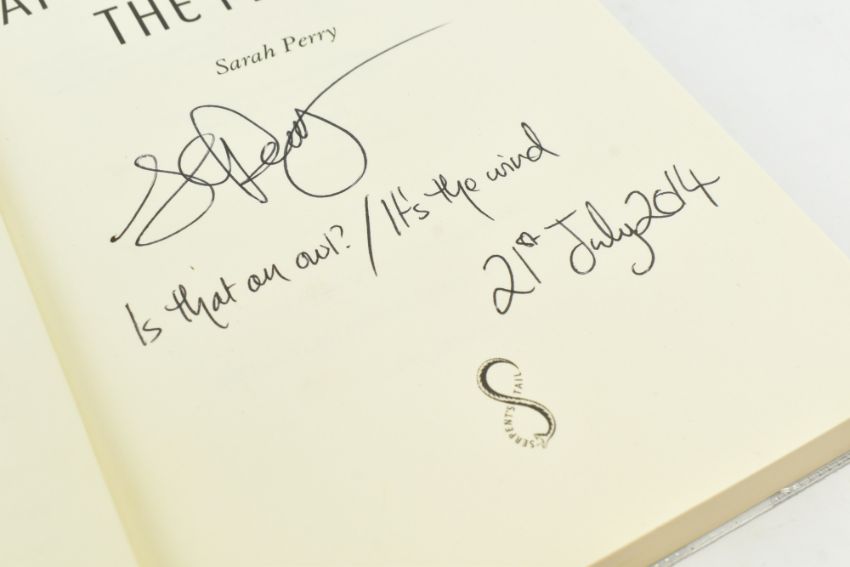 THE
Sarah Perry
SPerry
Is that an owl? / It's the wind
21st July 2014
SERPENT'S TAIL